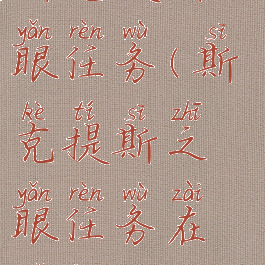 yǎn rèn wù sī
眼任务(斯
kè tí sī zhī
克提斯之
yǎn rèn wù zài
眼任务在